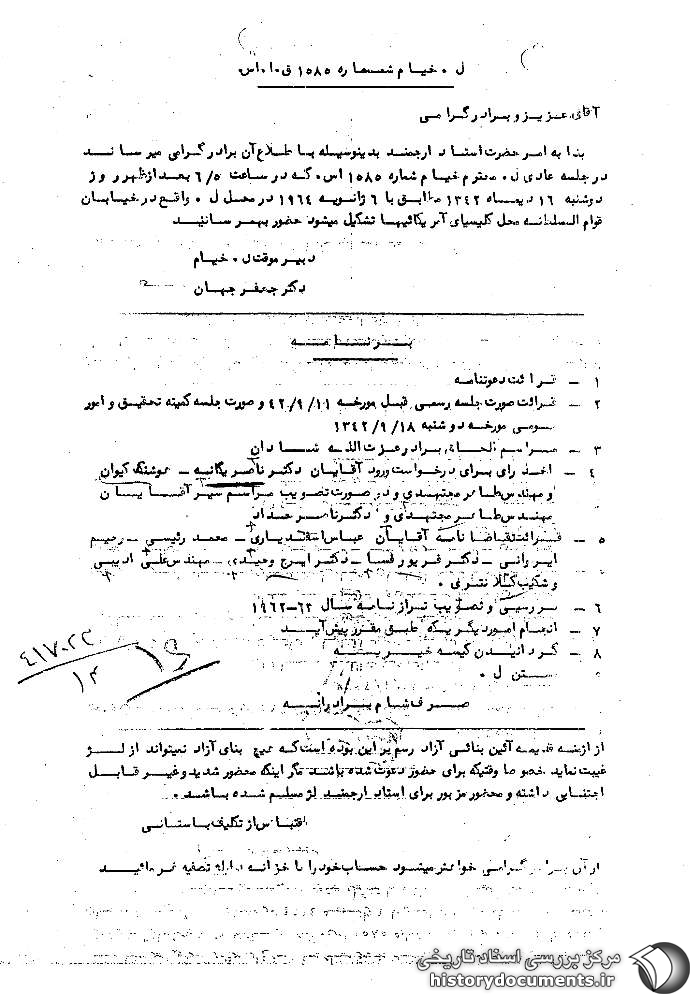 ل ۰ خیام شماره ۱۵۸۵ ق۰ا۰اس۰
آقای عزیز و برادر گرامی
بنا به امر حضرت استاد ارجمند بدینوسیله باطلاع آن برادر گرامی میرساند
در جلسه عادی ل۰ محترم خیام شماره ۱۵۸۵ اس۰ که در ساعت ۶/۵ بعدازظهر روز
دوشنبه ۱۶ دیماه ۱۳۴۲ مطابق با ۶ ژانویه ۱۹۶۴ در محل ل ۰ واقع در خیابان
قوام السلطنه محل کلیسای آمریکائیها تشکیل میشود حضور بهمرسانید
دبیر موقت ل ۰ خیام
دکتر جعفر جهان
برنامه
۱ – قرائت دعوتنامه
۲ – قرائت صورت جلسه رسمی قبل مورخه ۴۲/۹/۱۱ و صورت جلسه کمیته تحقیق و امور
عمومی مورخه دوشنبه ۱۳۴۲/۹/۱۸
۳ – مراسم الحاق برادر عزت الله شادان
۴ – اخذ رای برای درخواست ورود آقایان دکتر ناصر یگانه – هوشنگ کیوان
و مهندس طاهر مجتهدی و در صورت تصویب مراسم سیر آقایان
مهندس طاهر مجتهدی و دکتر ناصر حداد
۵ – قرائت تقاضا نامه آقایان عباس اسفندیاری – محمد رئیسی – رحیم
ایروانی – دکتر فریور فسا – دکتر ایرج وحیدی – مهندس علی ادیبی
و شکیب کلانتری ۰
۶ – بررسی و تصویب ترازنامه سال ۶۳–۱۹۶۲
۷ – انجام امور دیگریکه طبق مقرر پیش آید
۸ – گردانیدن کیسه خیریه
بستن ل ۰
۴۱۷۰۲۲
۱۴
صرف شام برادرانه
از ازمنه قدیمه آئین بنائی آزاد رسم بر این بوده است که هیچ بنای آزاد نمیتواند از لژ
غیبت نماید خصوصا وقتیکه برای حضور دعوت شده باشد مگر اینکه محضور شدید و غیر قابل
اجتنابی داشته و محضور مزبور برای استاد ارجمند لژ مسلم شده باشد ۰
اقتباس از تکلیف باستانی
از آن برادر گرامی خواهشمیشود حساب خود را با خزانه دار لژ تصفیه فرمائید
مرکز بررسی اسناد تاریخی
historydocuments.ir